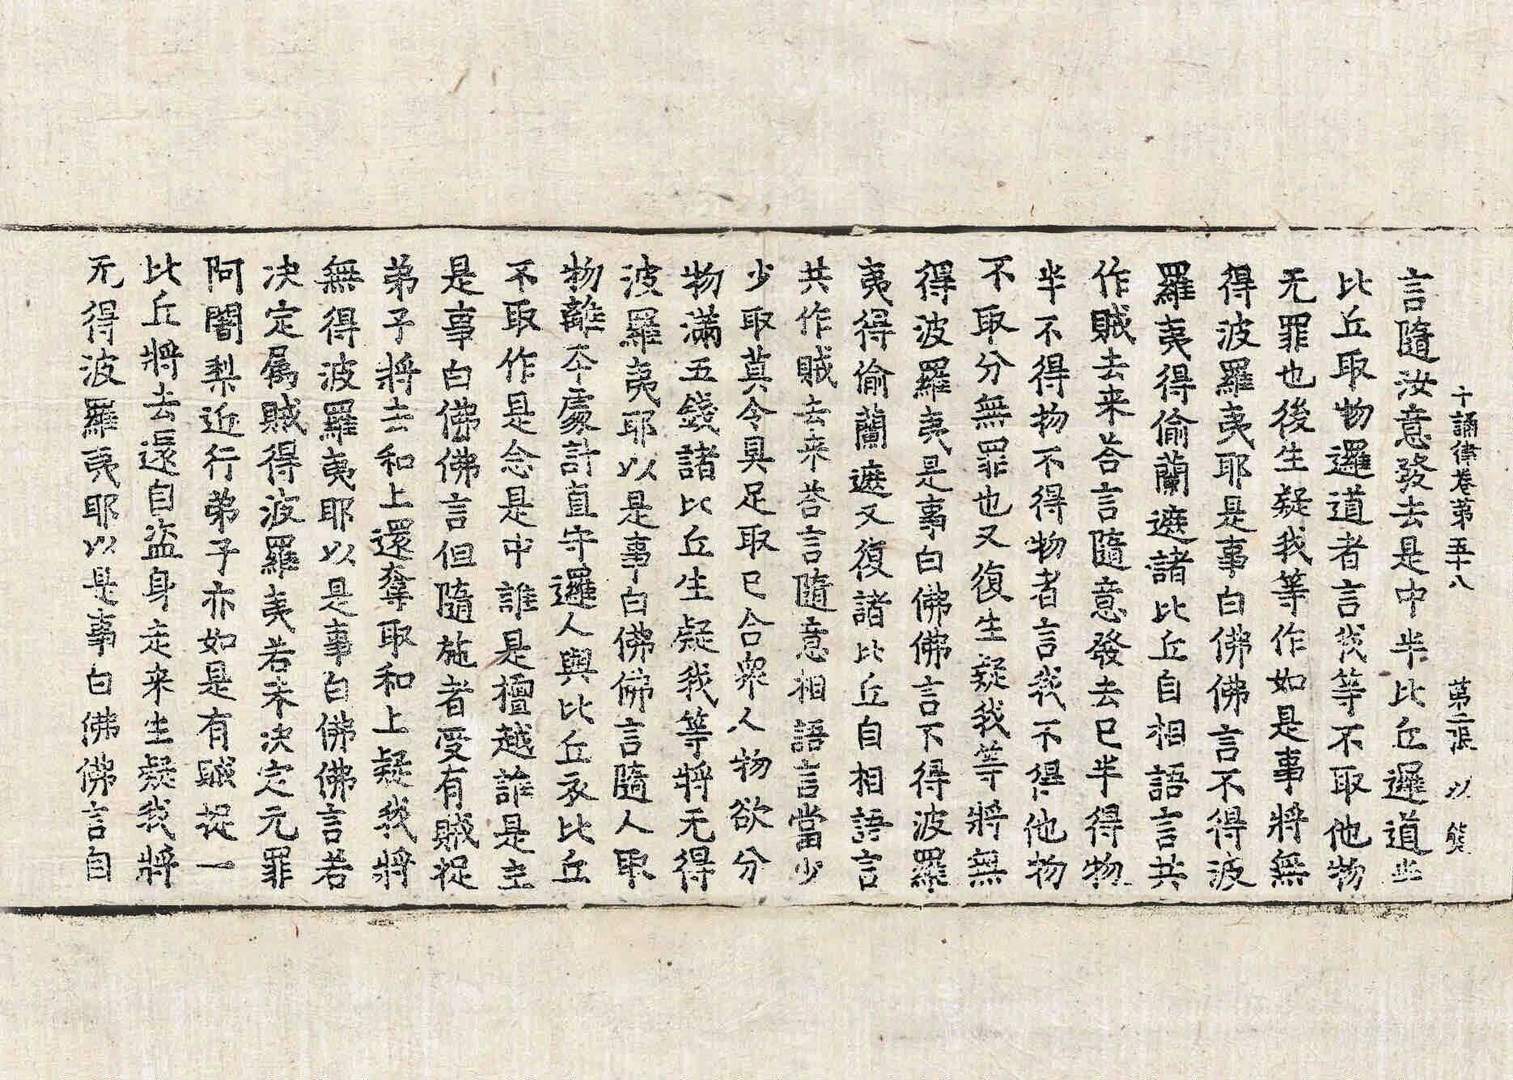 十誦律卷第五十八 第二張 以
言隨汝意發去是中半比丘邏道半
比丘取物邏道者言我等不取他物
无罪也後生疑我等作如是事將無
得波羅夷耶是事白佛佛言不得波
羅夷得偷蘭遮諸比丘自相語言共
作賊去来荅言隨意發去已半得物
半不得物不得物者言我不得他物
不取分無罪也又復生疑我等將無
得波羅夷是事白佛佛言不得波羅
夷得偷蘭遮又復諸比丘自相語言
共作賊去来荅言隨意相語言當少
少取莫令具足取已合衆人物欲分
物滿五錢諸比丘生疑我等將无得
波羅夷耶以是事白佛佛言隨人取
物離本處計直守邏人與比丘衣比丘
不取作是念是中誰是檀越誰是主
是事白佛佛言但隨施者受有賊捉
弟子將去和上還奪取和上疑我將
無得波羅夷耶以是事白佛佛言若
决定属賊得波羅夷若未决定无罪
阿闍梨近行弟子亦如是有賊捉一
比丘將去還自盜身走来生疑我將
无得波羅夷耶以是事白佛佛言自